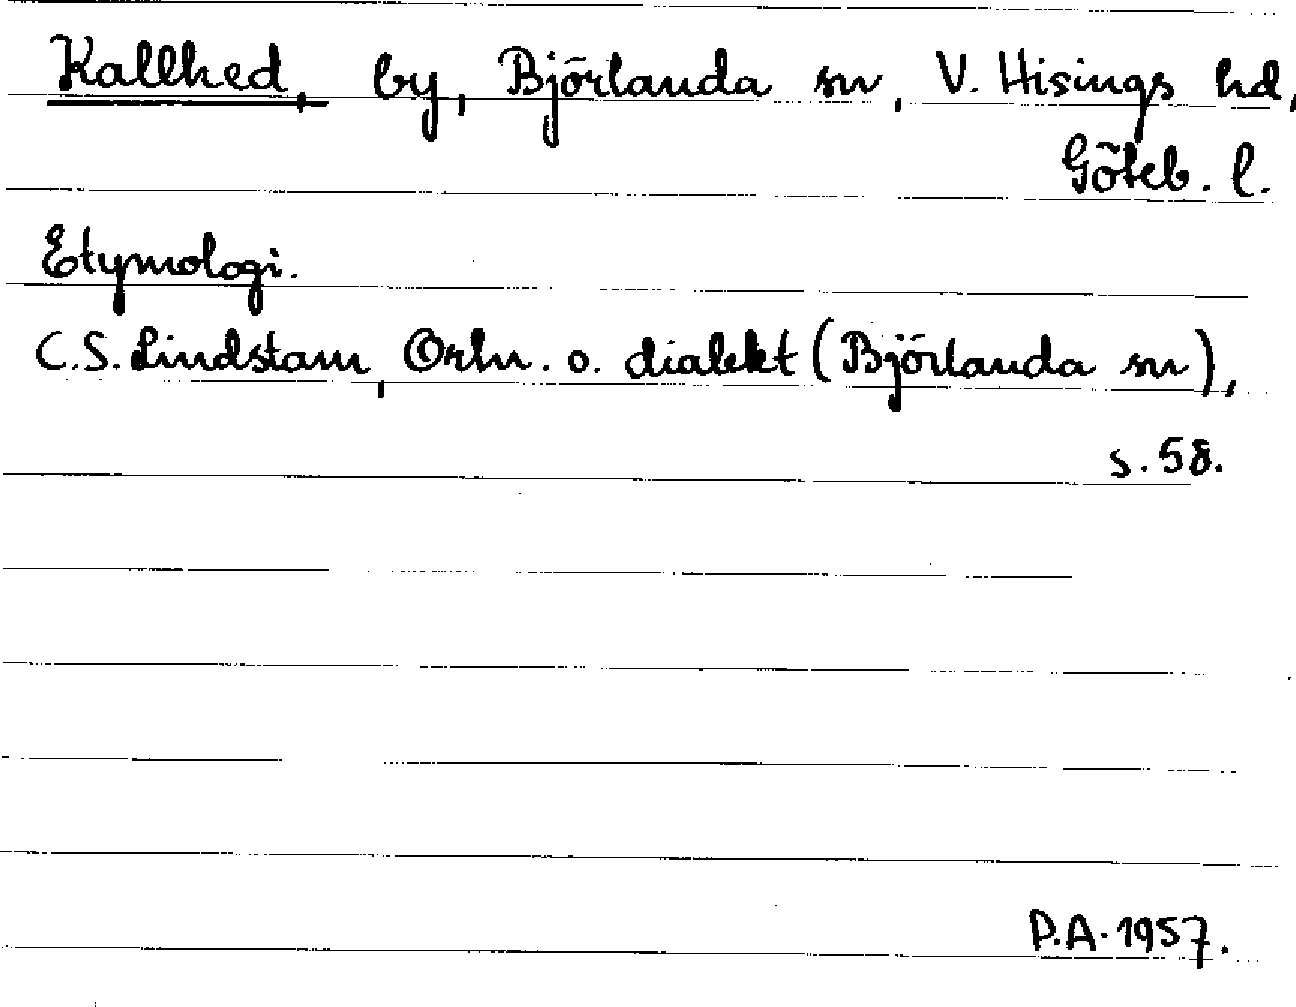 Kallhed, by, Björlanda sn, V. Hisings hd,
Göteb. l.
Etymologi.
C.S. Lindstam, Ortn. o. dialekt (Björlanda sn),
s. 58.
P.A. 1957.